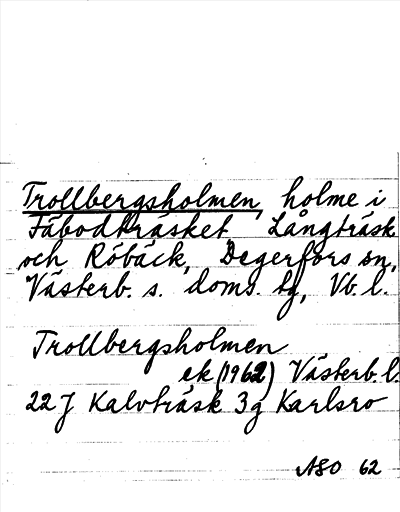 Trollbergsholmen, holme i
Fäbodträsket Långträsk
och Röbäck, Degerfors sn,
Västerb. s. doms. tg, Vb. l.
Trollbergsholmen
ek (1962) Västerb. l.
22 J Kalvträsk 3 g Karlsro
ASO 62